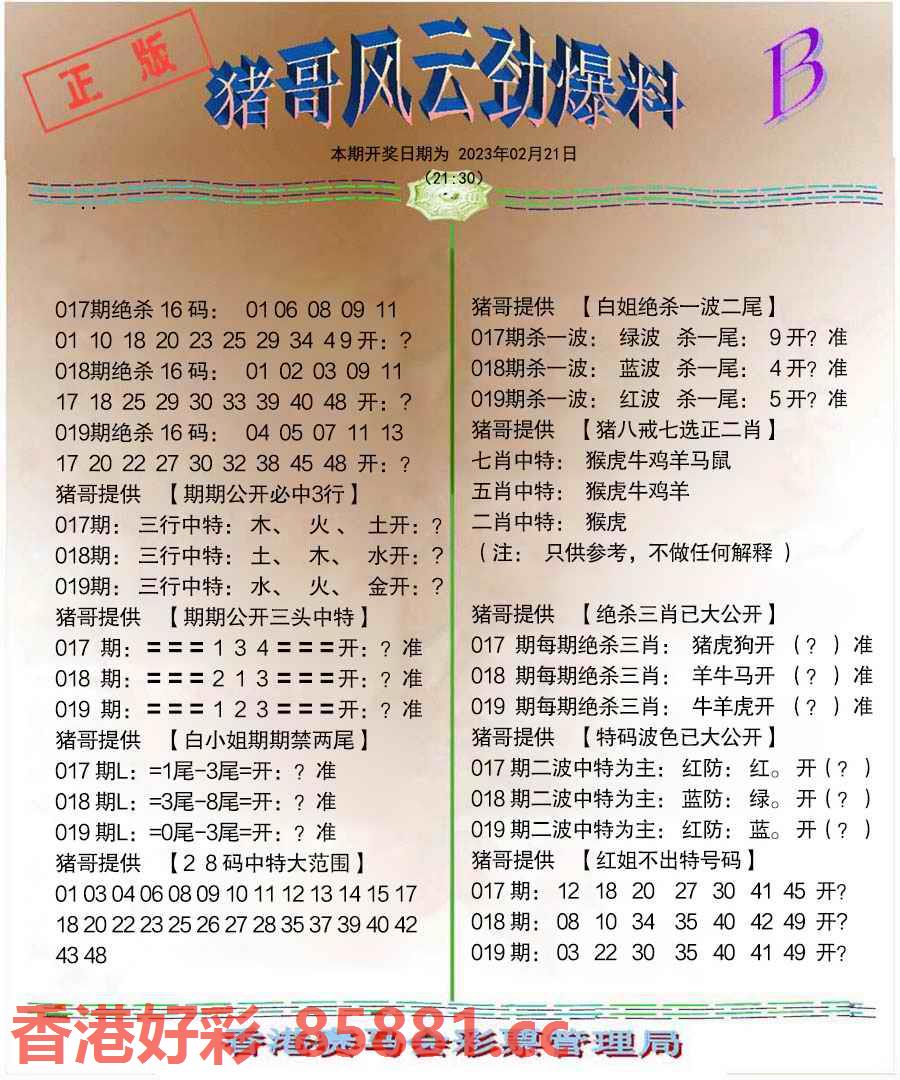 正版
猪哥风云劲爆料
B
本期开奖日期为 2023年02月21日
(21:30)
017期绝杀 16 码： 01 06 08 09 11
01 10 18 20 23 25 29 34 49 开：?
018期绝杀 16 码： 01 02 03 09 11
17 18 25 29 30 33 39 40 48 开：?
019期绝杀 16 码： 04 05 07 11 13
17 20 22 27 30 32 38 45 48 开：?
猪哥提供 【期期公开必中3行】
017期： 三行中特：木、 火、 土开：?
018期： 三行中特：土、 木、 水开：?
019期： 三行中特：水、 火、 金开：?
猪哥提供 【期期公开三头中特】
017 期：=== 1 3 4 ===开：? 准
018 期：=== 2 1 3 ===开：? 准
019 期：=== 1 2 3 ===开：? 准
猪哥提供 【白小姐期期禁两尾】
017 期L：=1尾-3尾=开：? 准
018 期L：=3尾-8尾=开：? 准
019 期L：=0尾-3尾=开：? 准
猪哥提供 【２８码中特大范围】
01 03 04 06 08 09 10 11 12 13 14 15 17
18 20 22 23 25 26 27 28 35 37 39 40 42
43 48
猪哥提供 【白姐绝杀一波二尾】
017期杀一波： 绿波 杀一尾： 9 开? 准
018期杀一波： 蓝波 杀一尾： 4 开? 准
019期杀一波： 红波 杀一尾： 5 开? 准
猪哥提供 【猪八戒七选正二肖】
七肖中特： 猴虎牛鸡羊马鼠
五肖中特： 猴虎牛鸡羊
二肖中特： 猴虎
（注： 只供参考，不做任何解释 ）
猪哥提供 【绝杀三肖已大公开】
017 期每期绝杀三肖： 猪虎狗开 （? ）准
018 期每期绝杀三肖： 羊牛马开 （? ）准
019 期每期绝杀三肖： 牛羊虎开 （? ）准
猪哥提供 【特码波色已大公开】
017 期二波中特为主： 红防： 红。 开（? ）
018 期二波中特为主： 蓝防： 绿。 开（? ）
019 期二波中特为主： 红防： 蓝。 开（? ）
猪哥提供 【红姐不出特号码】
017 期： 12 18 20 27 30 41 45 开?
018 期： 08 10 34 35 40 42 49 开?
019 期： 03 22 30 35 40 41 49 开?
香港好彩 85881.cc
香港赛马会彩票管理局